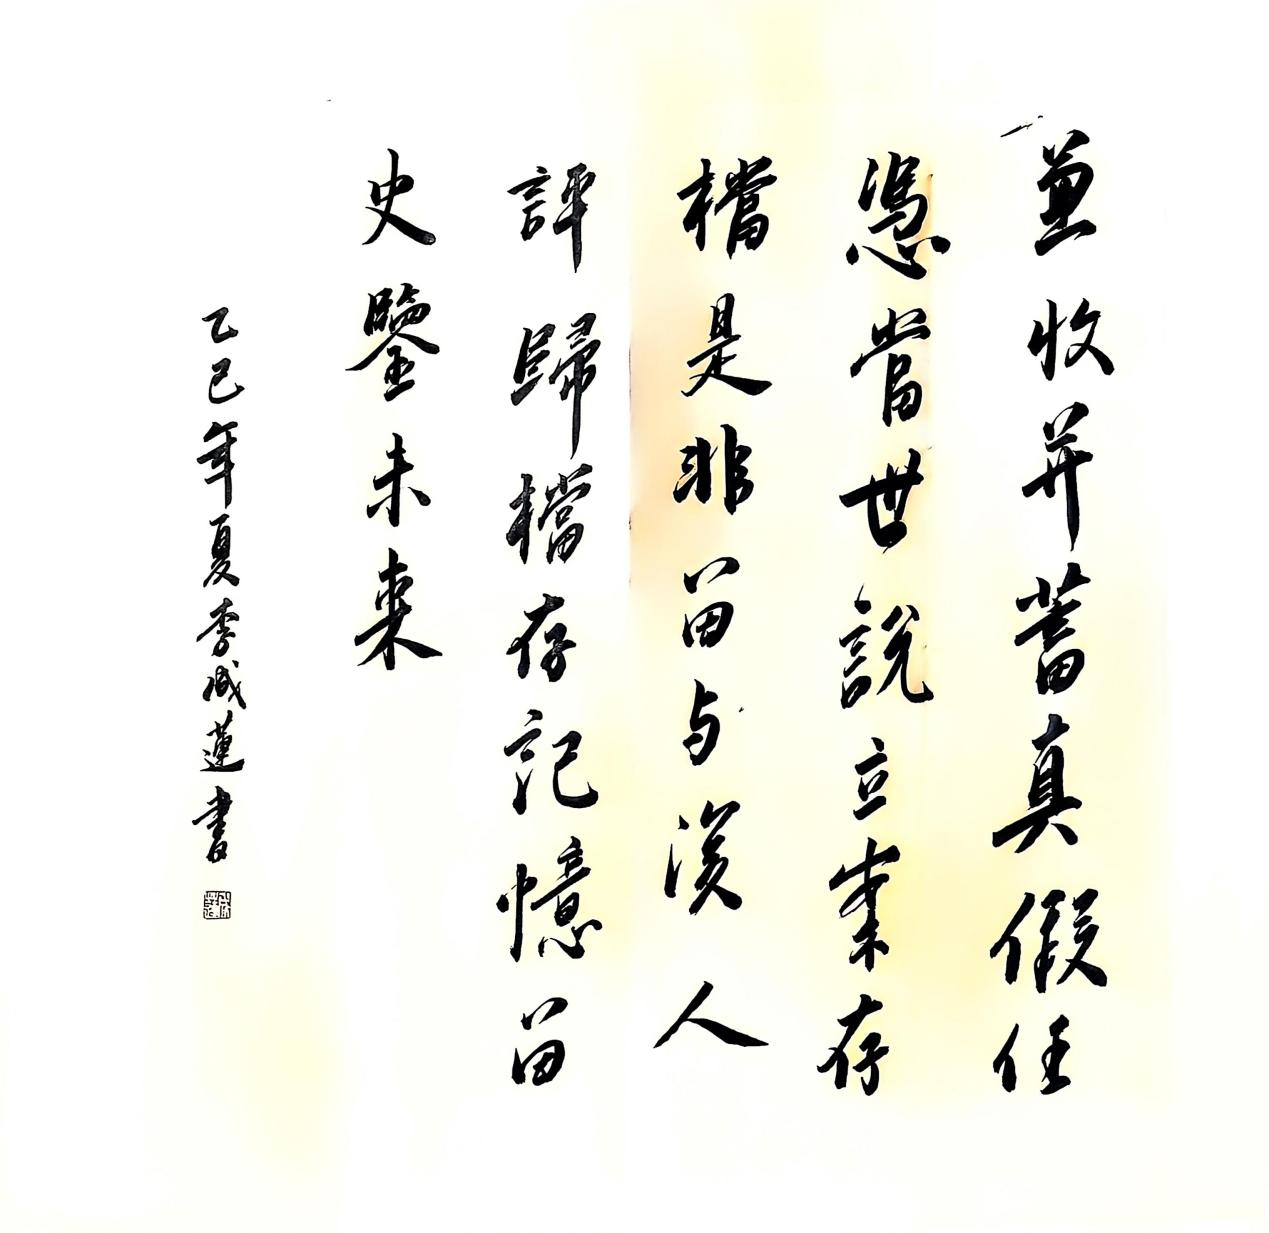 兼收并蓄真假任
憑當世説立案存
檔是非留与後人
評歸檔存記憶留
史鑒未来
乙巳年夏李成蓮書